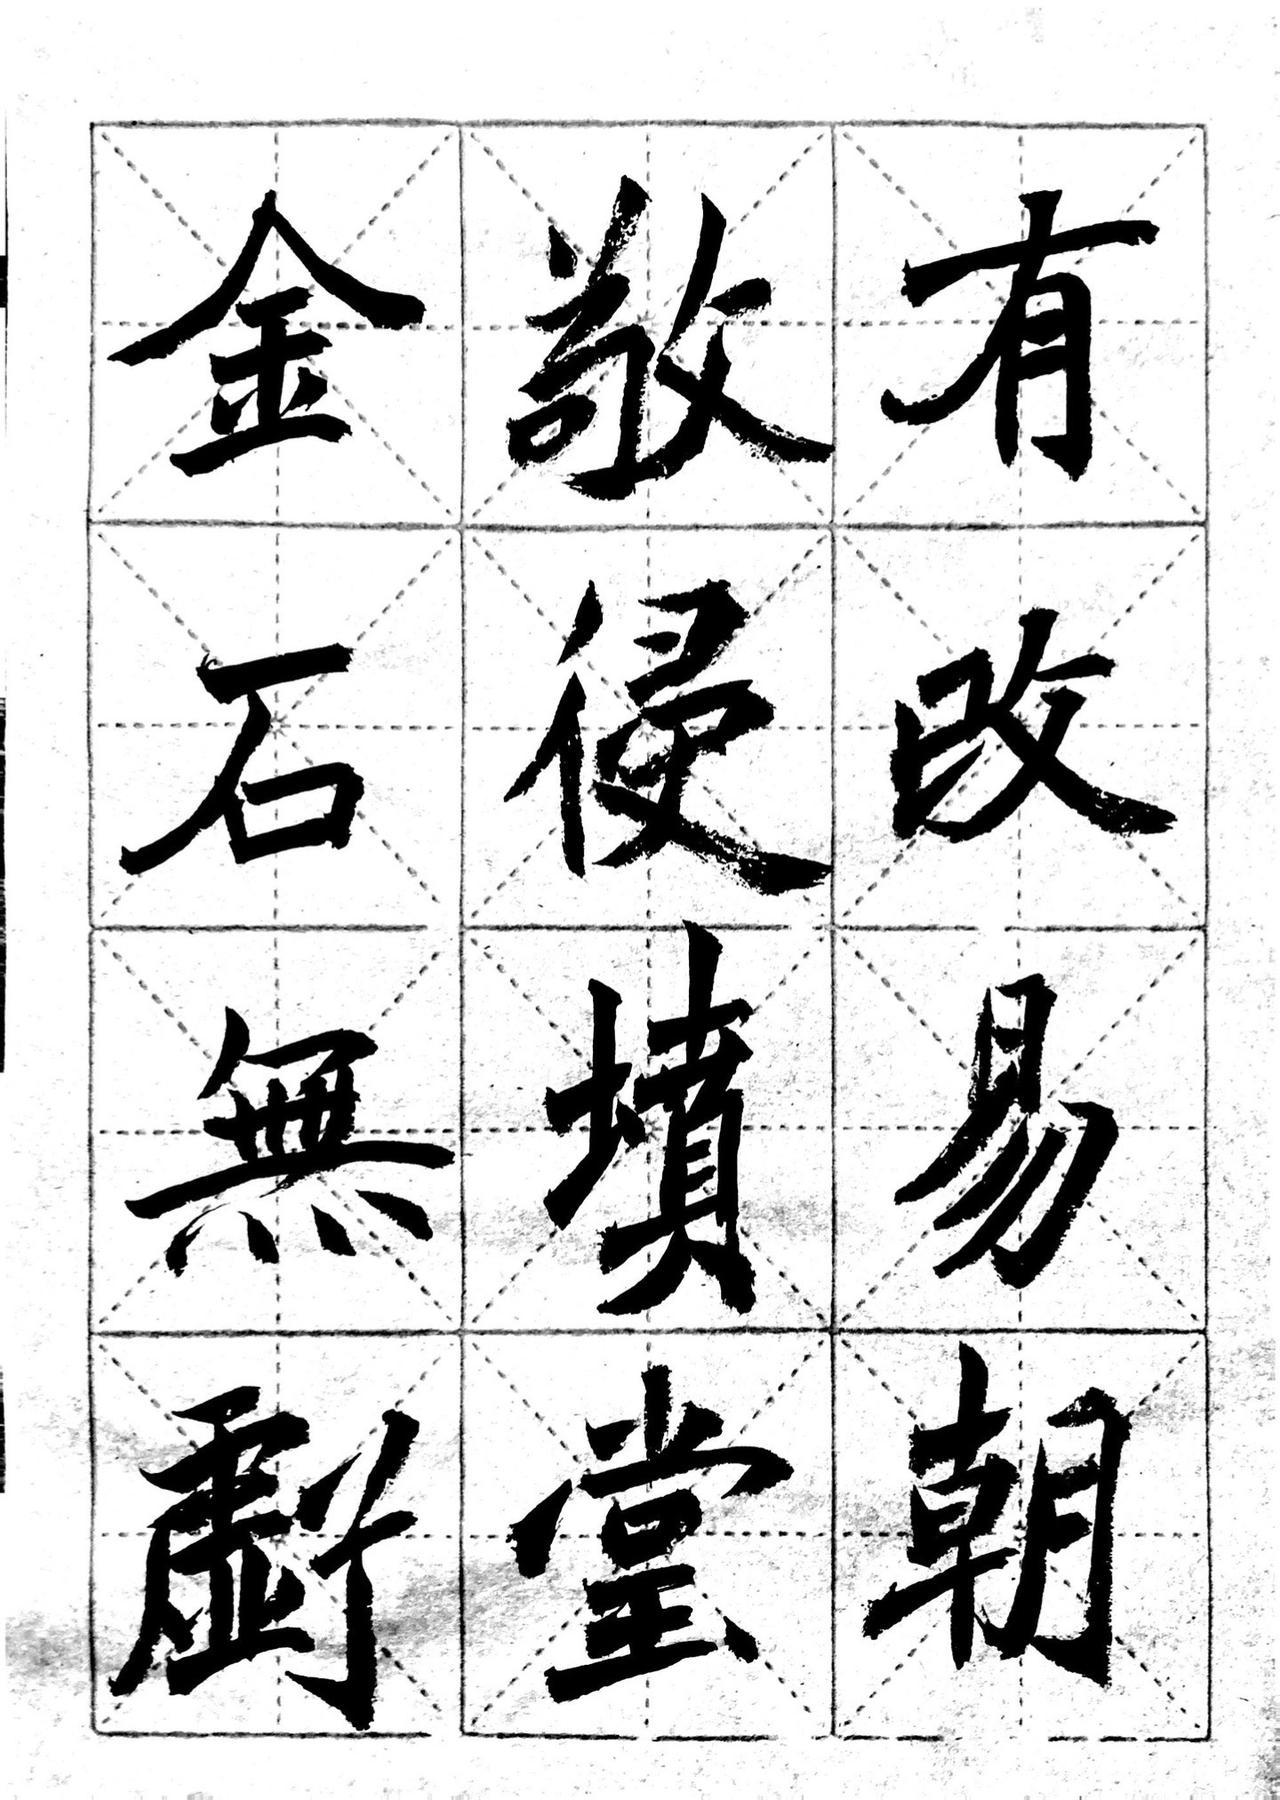 有改易朝
敬侵墳堂
金石無虧